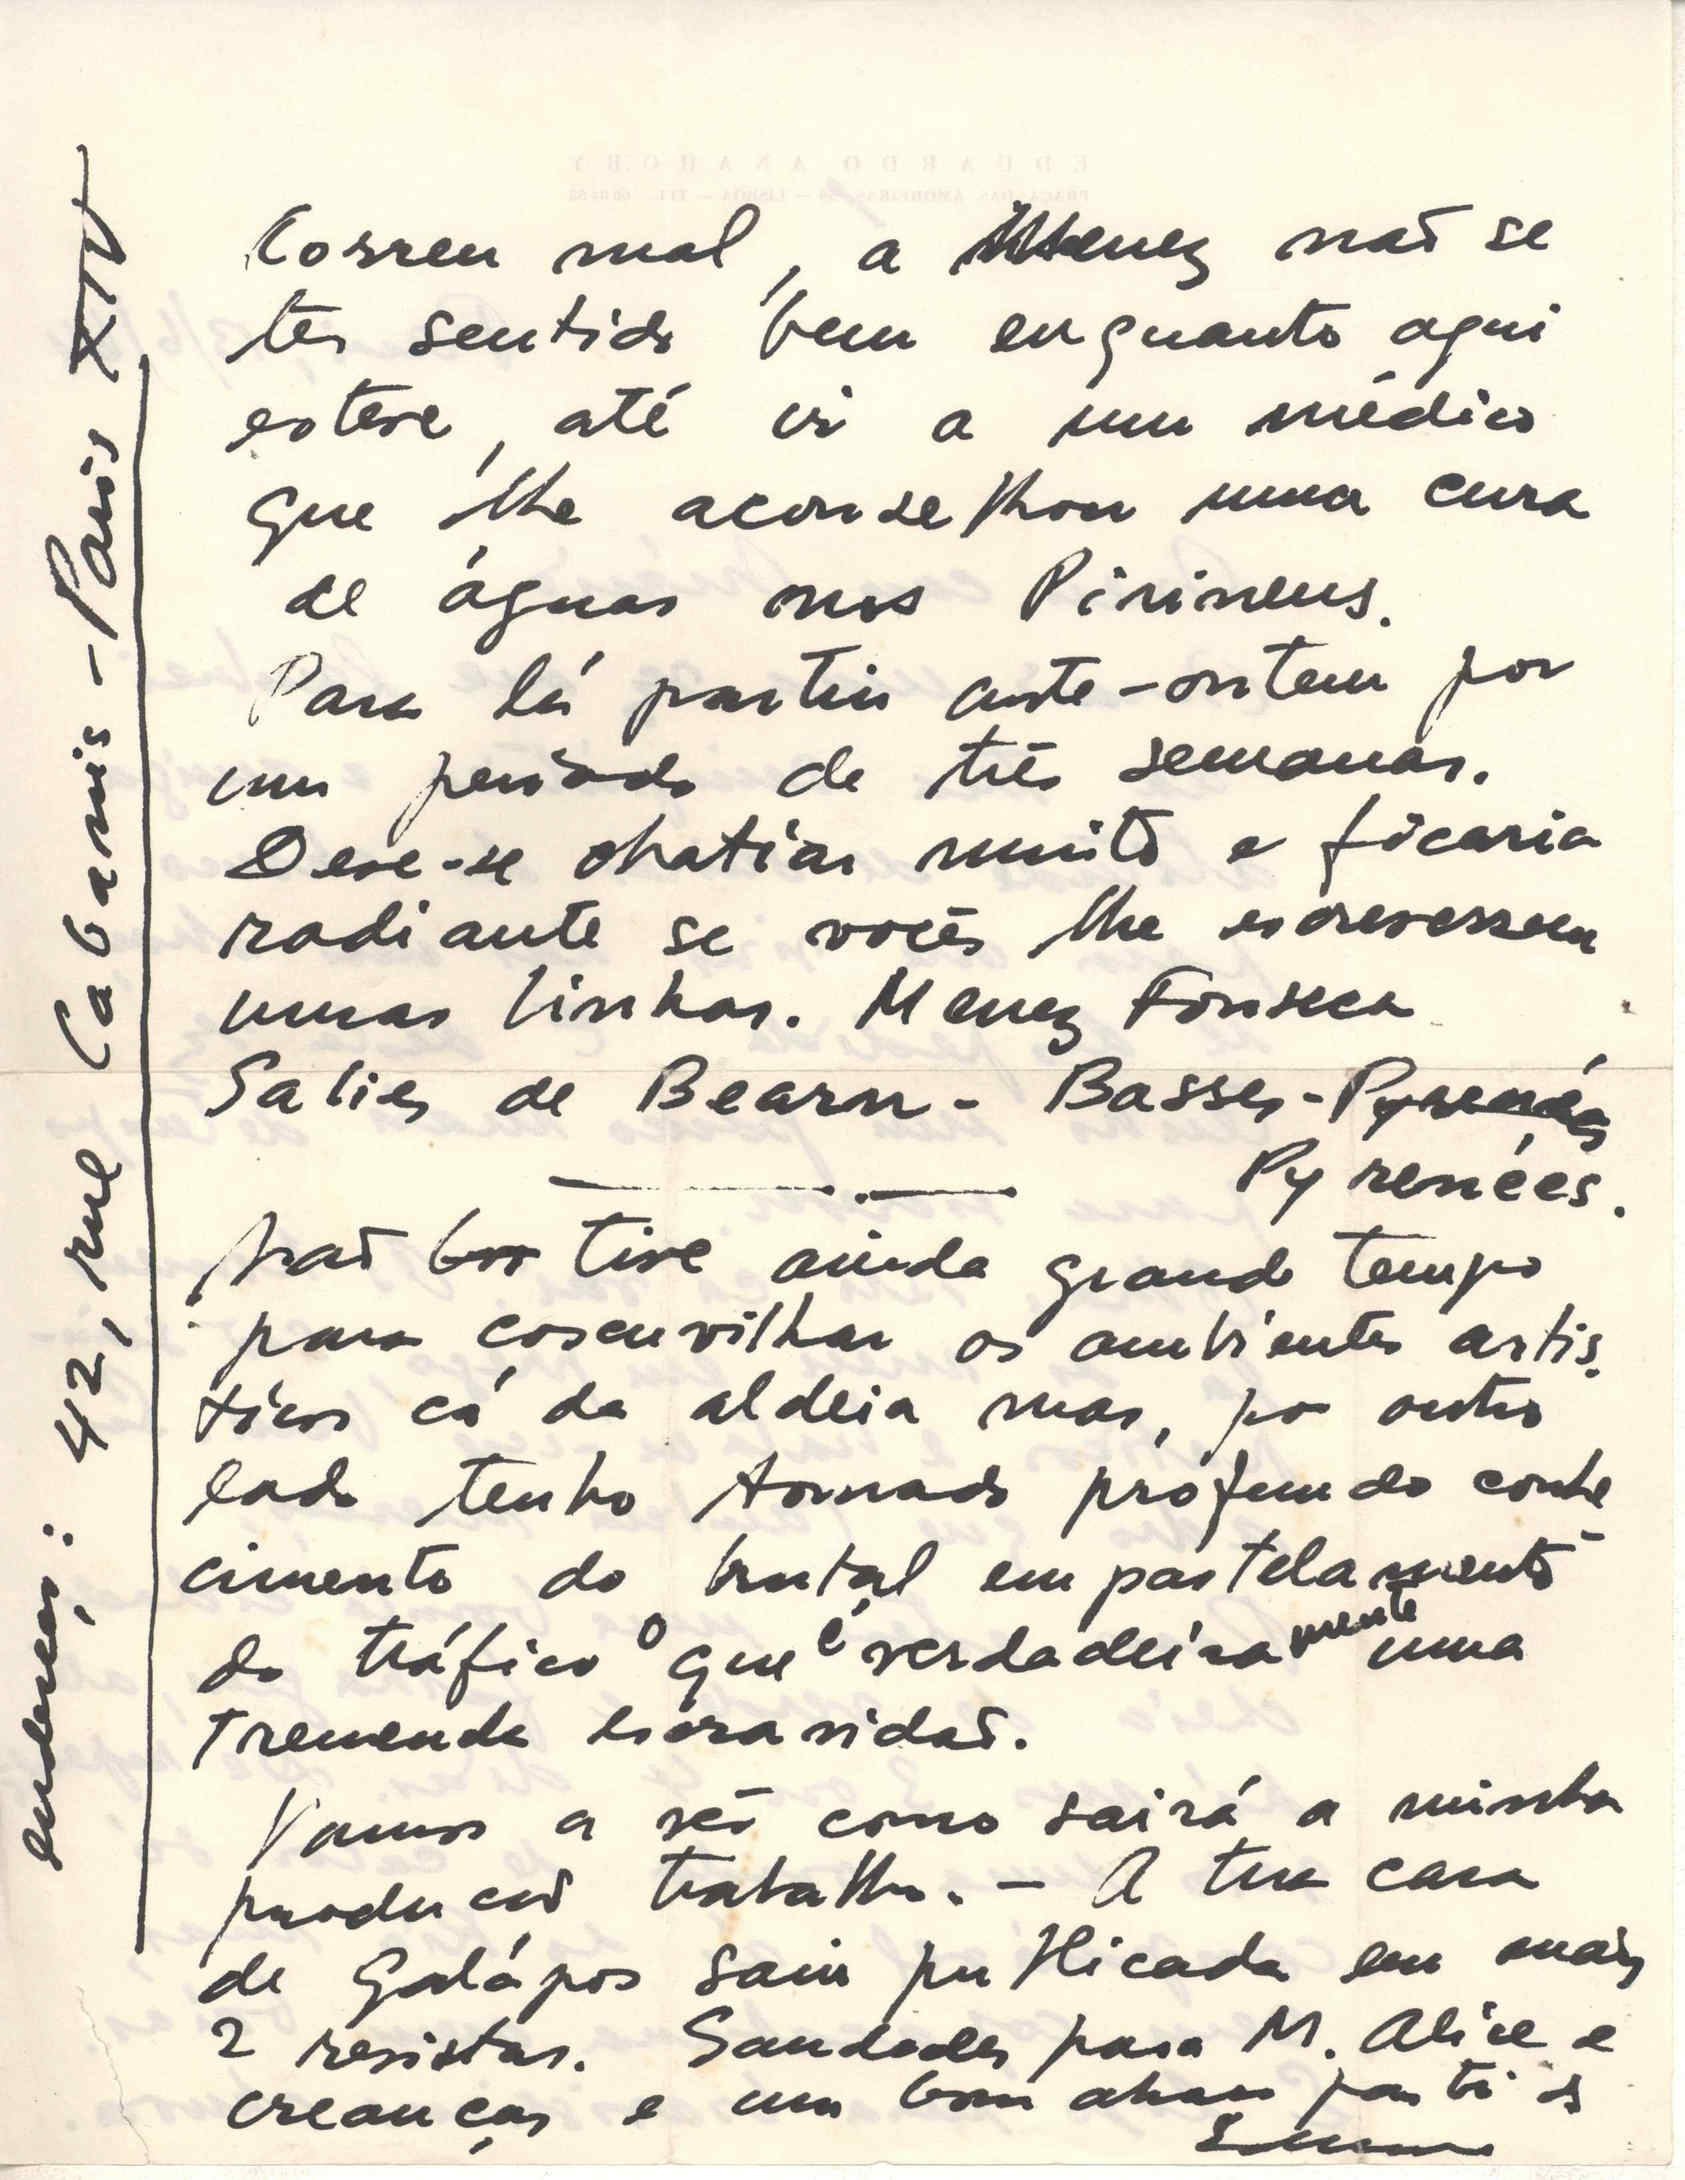 Correu mal, a Menez não se
ter sentido bem enquanto aqui
esteve, até ir a um médico
que lhe aconselhou uma cura
de águas nos Pirineus.
Para lá partiu ante-ontem por
um período de três semanas.
Deve-se chatiar muito e ficaria
radiante se vocês lhe escrevessem
umas linhas. Menez Fonseca
Salies de Bearn - Basses-
Pyrenées.
Não tive ainda grande tempo
para coscuvilhar os ambientes artis-
ticos cá da aldeia mas, por outro
lado tenho tomado profundo conhe
cimento do brutal empastelamento
do tráfico o que é verdadeiramente uma
tremenda escravidão.
Vamos a ver como sairá a minha
produção trabalho. - A tua casa
de Galápos saiu publicada em mais
2 revistas. Saudades para M. Alice e
creanças e um bom abraço para ti do
endereço: 42, rue Cabanis - Paris XIV